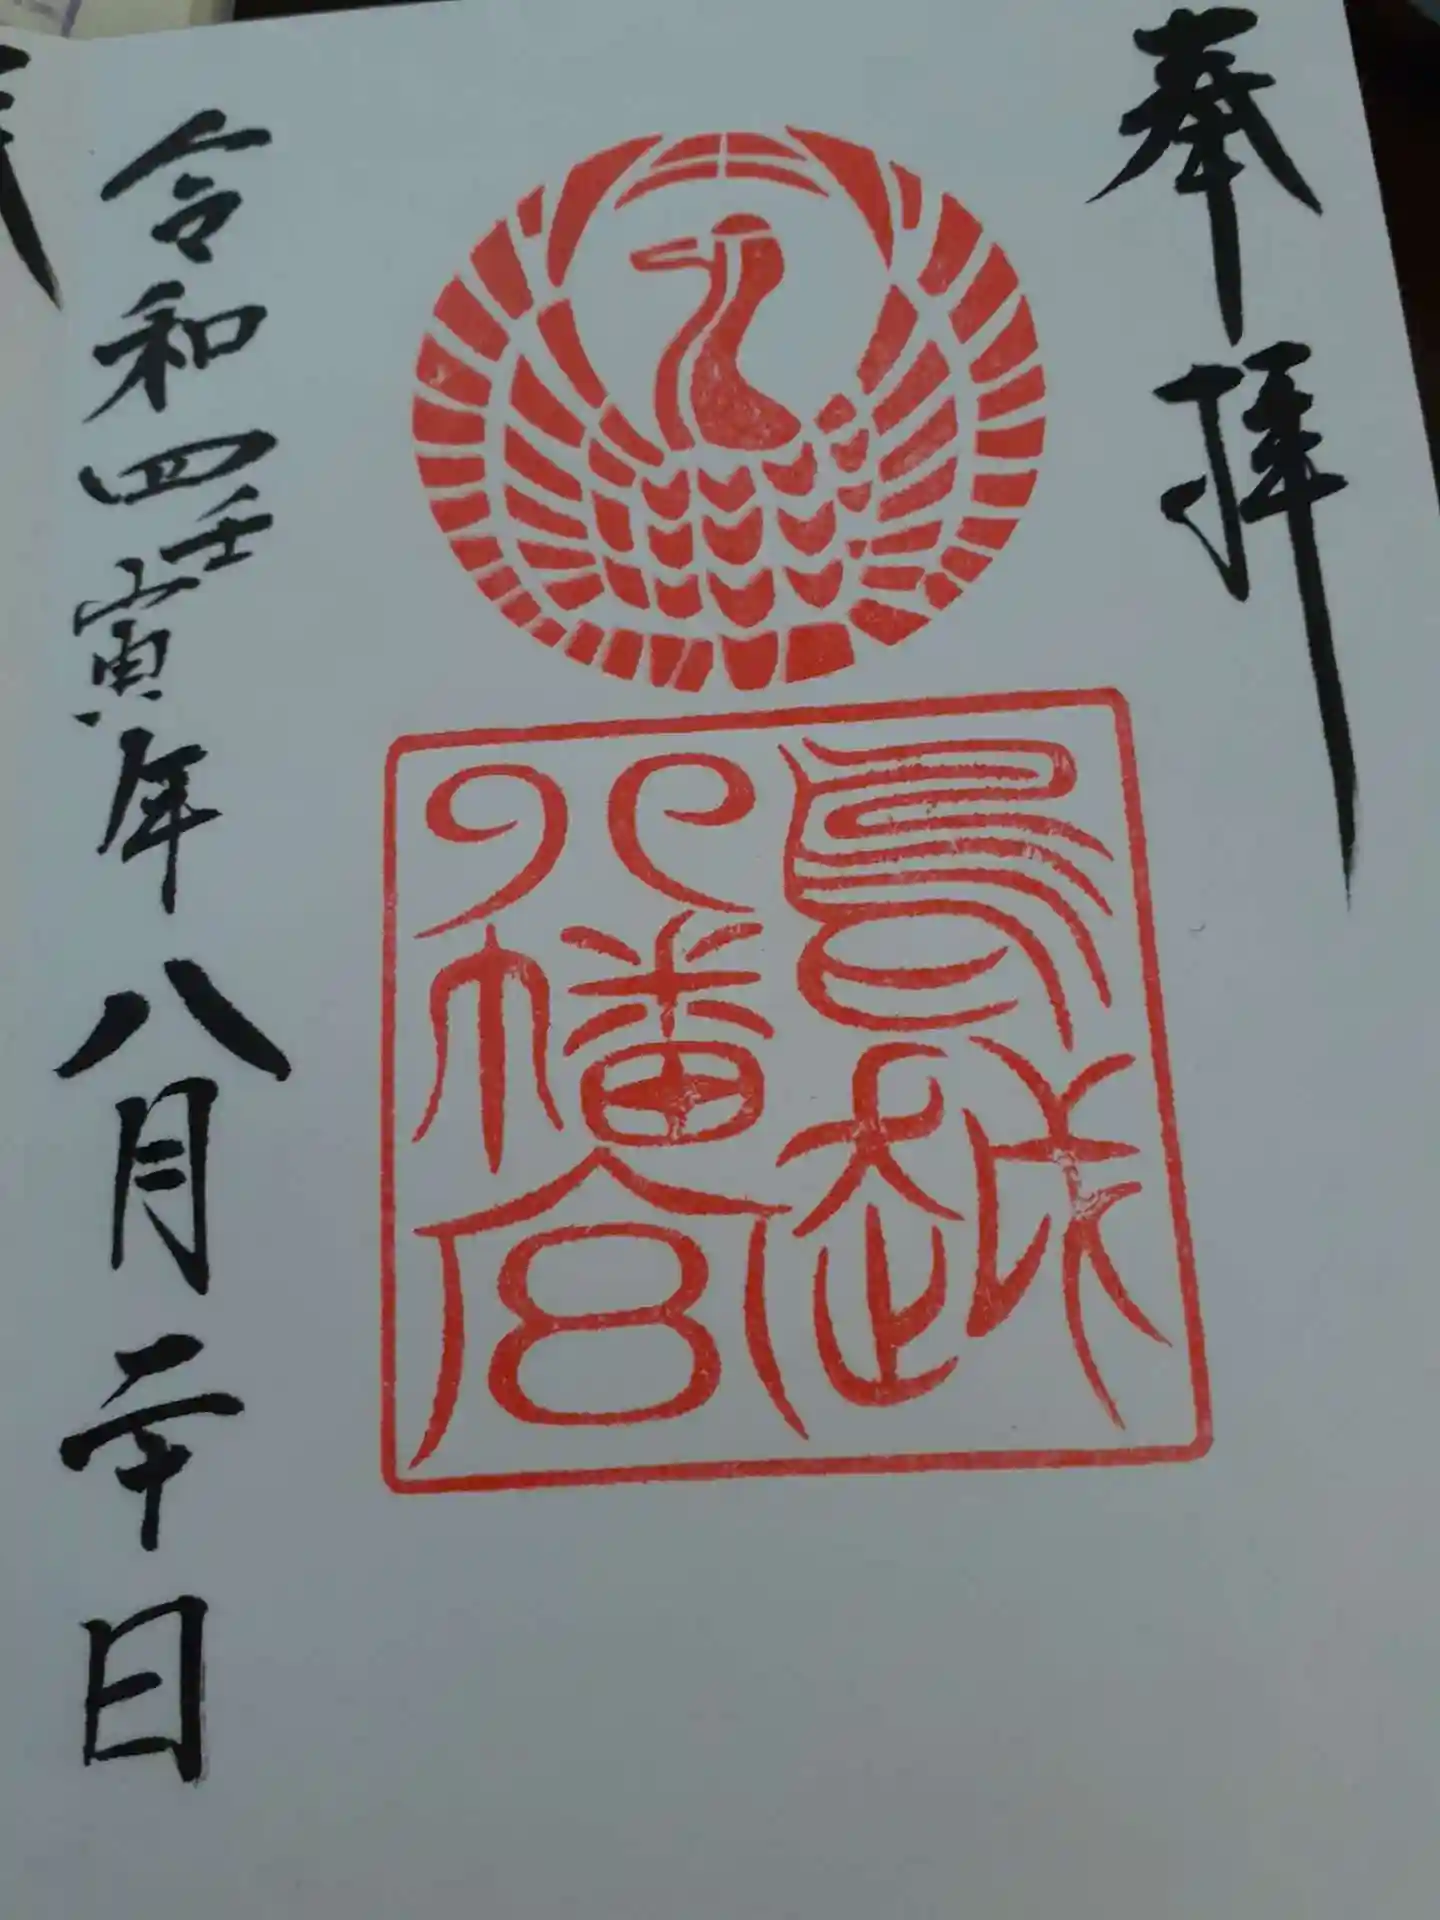 奉拝
鳥越
八幡宮
令和四壬寅年八月二十日